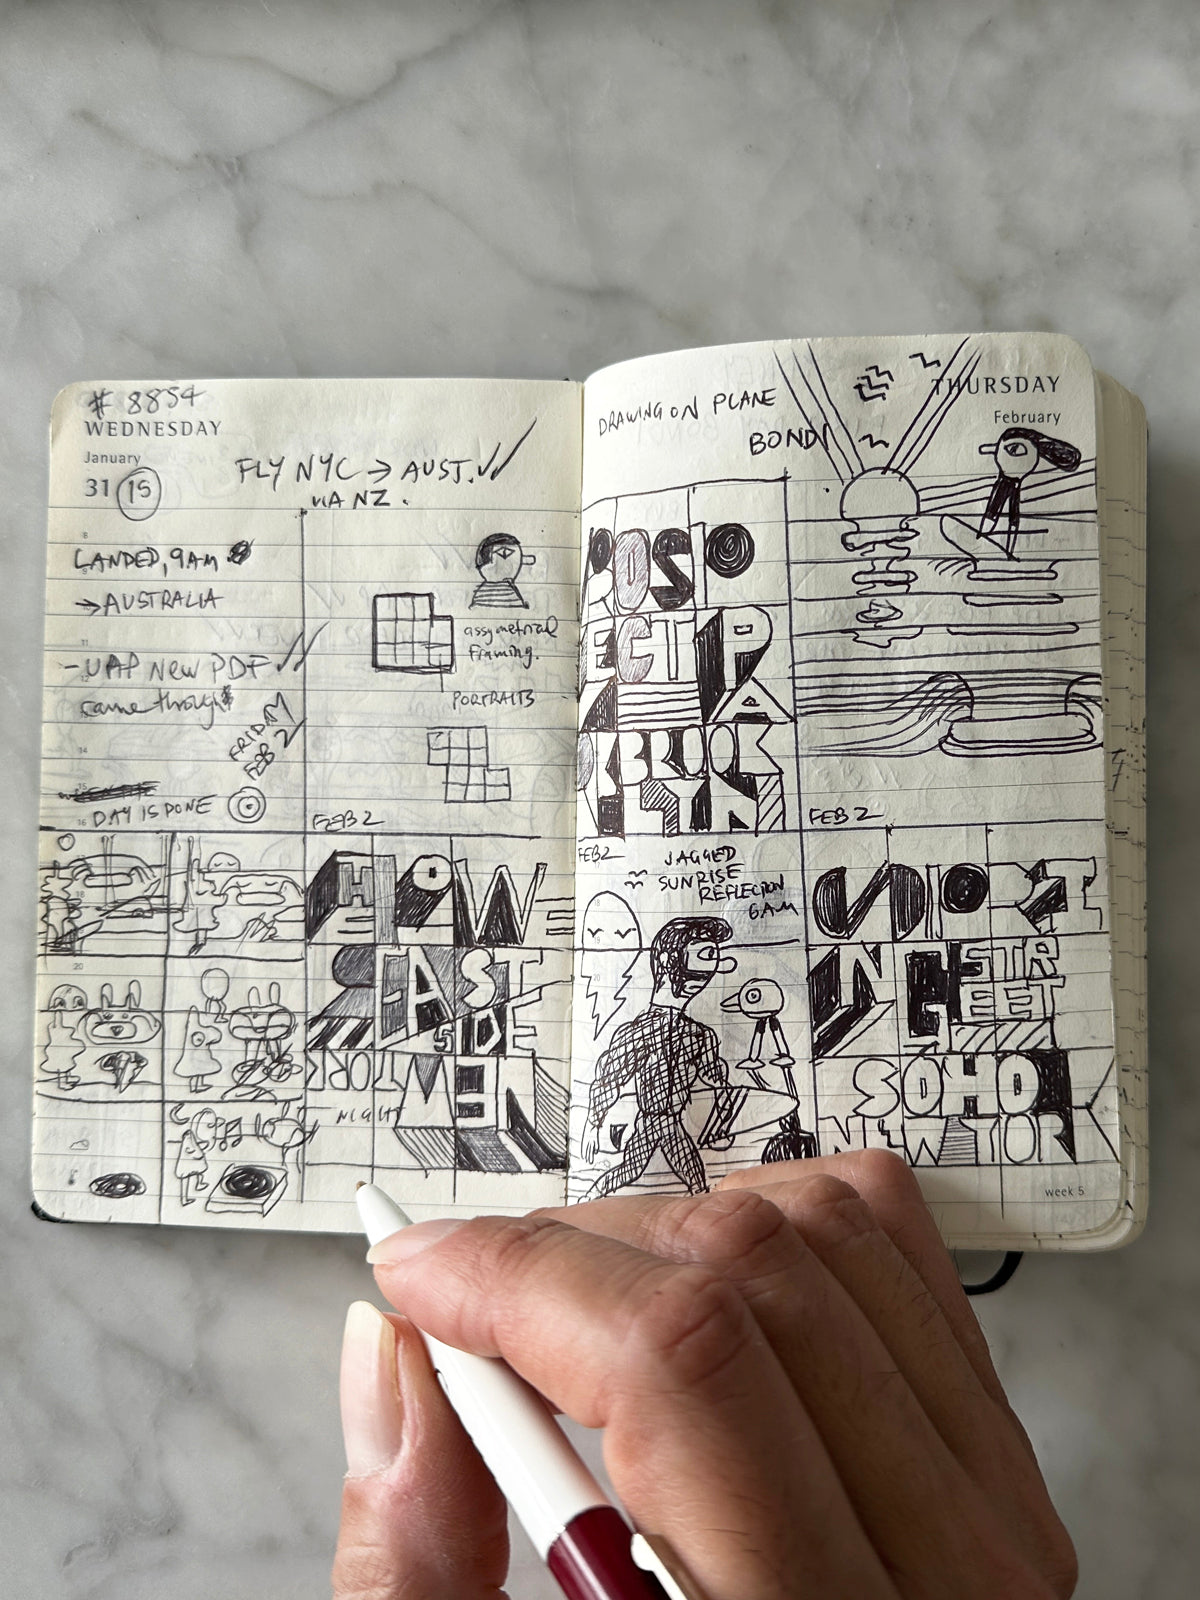 # 8854
WEDNESDAY
January
31 15
FLY NYC → AUST. ✓✓
VIA NZ.
LANDED, 9AM
→ AUSTRALIA
- UAP NEW PDF ✓✓
came through
FRIDAY
FEB 2
DAY IS DONE
assymetrical
framing.
PORTRAITS
FEB 2
HOW
EAST
SIDE
NIGHT
MEN
DRAWING ON PLANE
BONDI
THURSDAY
February
PROSP
ECT PA
RK BROOK
LYN
FEB 2
FEB 2
JAGGED
SUNRISE
REFLECTION
6AM
IN G STR
EET
SOHO
NEW YORK
week 5